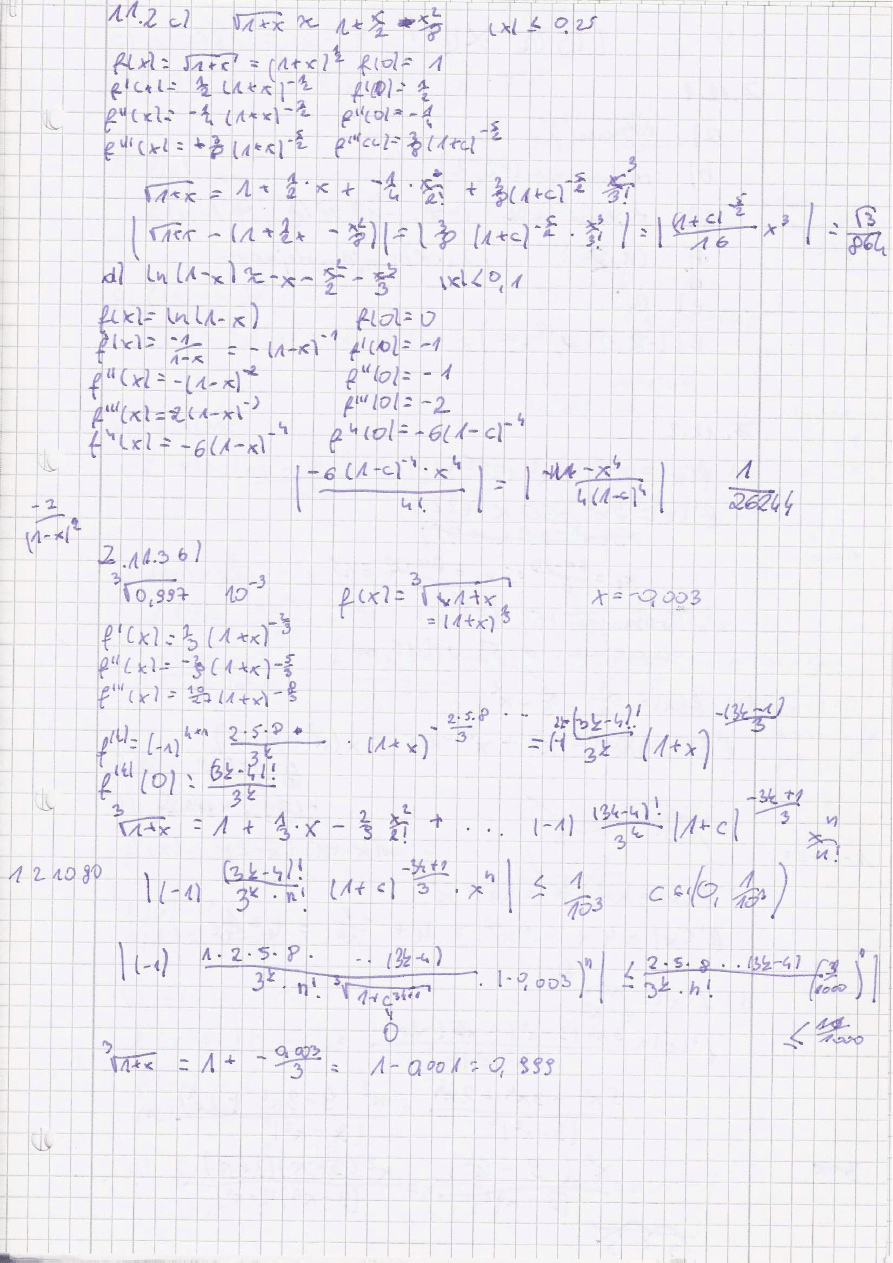 11.2 c) √1+x ≈ 1+x/2 - x²/8 |x| ≤ 0,25
f(x) = √1+x = (1+x)^1/2 f(0) = 1
f'(x) = 1/2 (1+x)^-1/2 f'(0) = 1/2
f''(x) = -1/4 (1+x)^-3/2 f''(0) = -1/4
f'''(x) = +3/8 (1+x)^-5/2 f'''(c) = 3/8 (1+c)^-5/2
√1+x = 1 + 1/2 · x + -1/4 · x²/2! + 3/8 (1+c)^-5/2 x³/3!
| √1+x - (1 + 1/2x - x²/8) | = | 3/8 (1+c)^-5/2 · x³/3! | = | (1+c)^-5/2/16 x³ | = √3/864
d) ln(1-x) ≈ -x - x²/2 - x³/3 |x| < 0,1
f(x) = ln(1-x) f(0) = 0
f'(x) = -1/1-x = -(1-x)^-1 f'(0) = -1
f''(x) = -(1-x)^-2 f''(0) = -1
f'''(x) = -2(1-x)^-3 f'''(0) = -2
f^4(x) = -6(1-x)^-4 f^4(0) = -6(1-c)^-4
| -6(1-c)^-4 · x^4/4! | = | -x^4/4(1-c)^4 | 1/26244
-2/(1-x)²
2.11.3 b)
³√0,997 10^-3 f(x) = ³√1+x x = -0,003
= (1+x)^1/3
f'(x) = 1/3 (1+x)^-2/3
f''(x) = -2/9 (1+x)^-5/3
f'''(x) = 10/27 (1+x)^-8/3
f^(k) = (-1)^k+1 2·5·8·/3^k · (1+x)^-2·5·8/3 ... = (-1) (3k-4)!/3^k (1+x)^-(3k-1)/3
f^(k)(0) = (3k-4)!/3^k
³√1+x = 1 + 1/3 · x - 2/9 x²/2! + ... (-1) (3k-4)!/3^k (1+c)^-3k+1/3 x^n/n!
121080 | (-1) (3k-4)!/3^k · n! (1+c)^-3k+1/3 · x^n | ≤ 1/10³ c ∈ (0, 1/10³)
| (-1) 1·2·5·8· ... (3k-4)/3^k · n! ³√1+c^3k+1 · (-0,003)^n | ≤ 2·5·8·..(3k-4)/3^k · n! (3/1000)^n |
0 ≤ 1/1000
³√1+x = 1 + -0,003/3 = 1 - 0,001 = 0,999